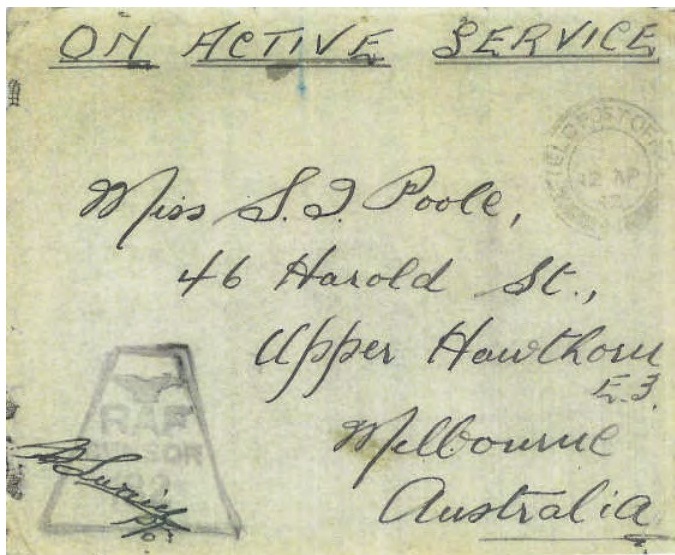 ON ACTIVE SERVICE
FIELD POST OF
12 AP
Miss S. I. Poole,
46 Harold St.,
Upper Hawthorn
E.3.
Melbourne
Australia
RAF
CENSOR